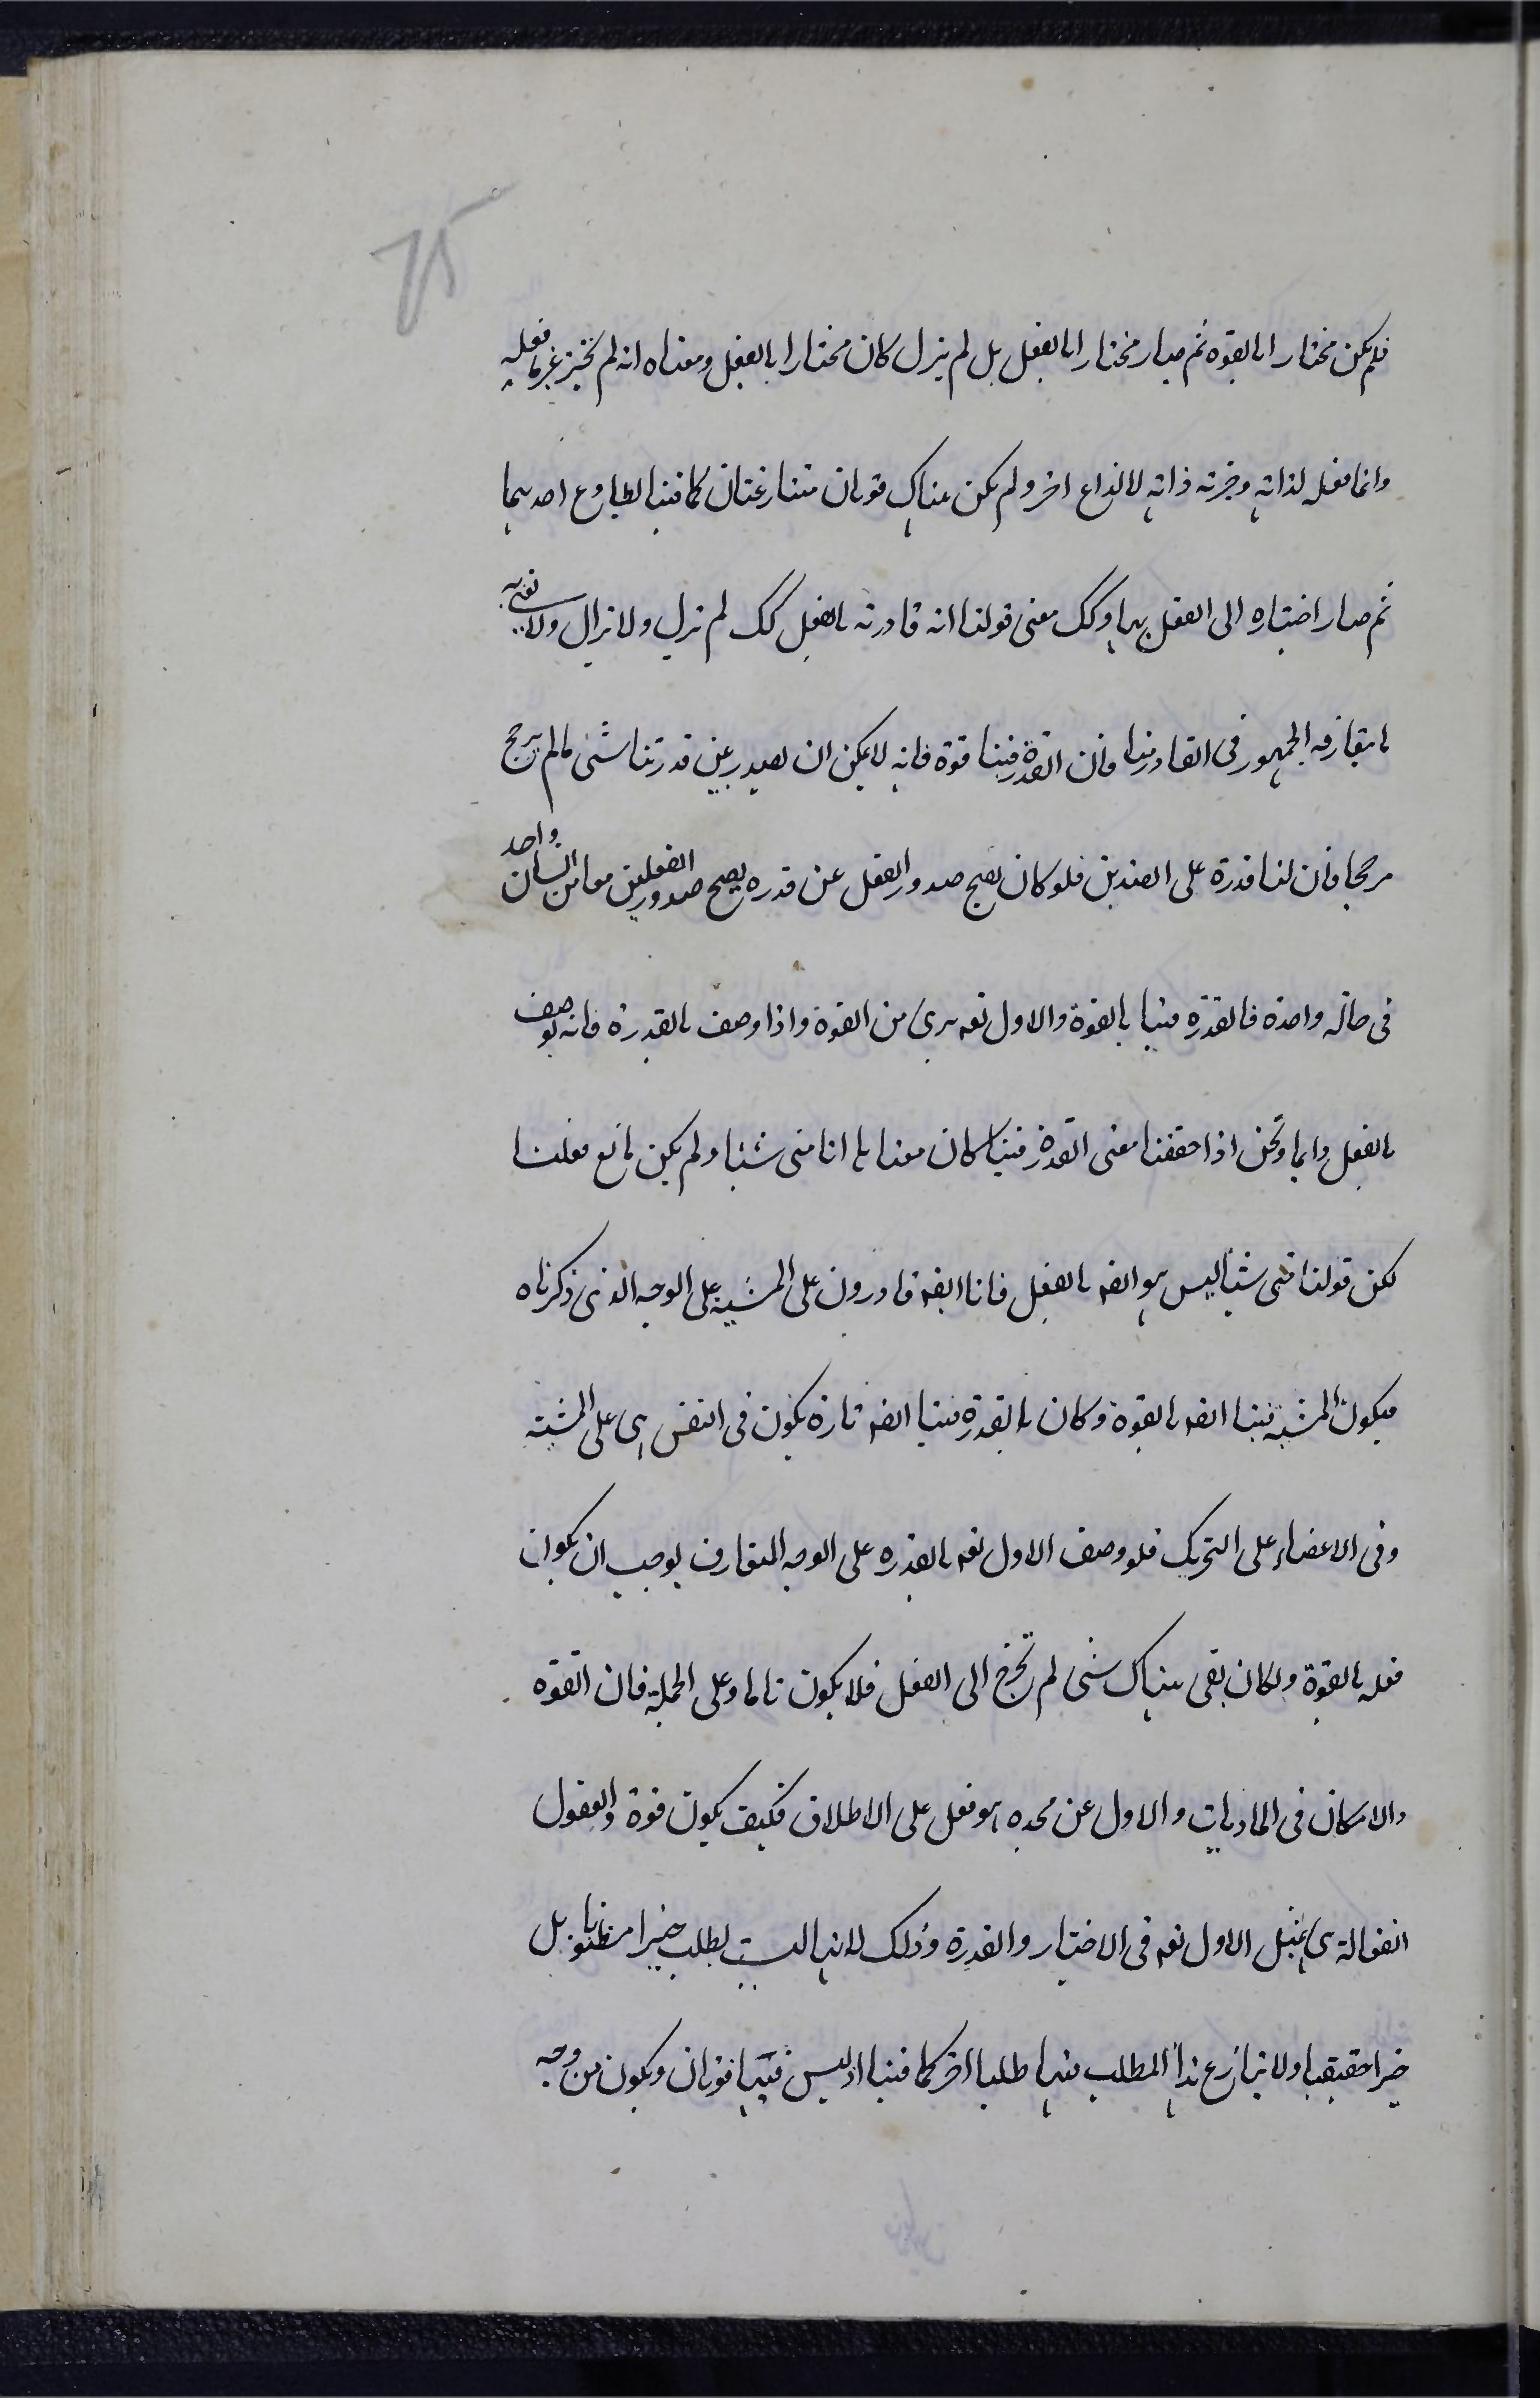 ٦٥
فلم يكن مختارا بالقوة ثم صار مختارا بالفعل بل لم يزل كان مختارا بالفعل ومعناه انه لم يختر غير ما فعله
وانما فعله لذاته وخيرته ذاته لا لداع اخر ولم يكن هناك قوتان متنازعتان كما فينا لطاوع احديهما
ثم صار اختياره الى الفعل بها وكك معنى قولنا انه قادر انه بالفعل كك لم تزل ولا تزال ولا نعنى به
ما يتعارفه الجمهور فى القادر منا فان القدرة فينا قوة فانه لا يمكن ان يصدر عن قدرتنا شئ ما لم يرجح
مرجحا فان لنا قدرة على الضدين فلو كان يصح صدور الفعل عن قدره يصح صدور الفعلين معا من انسان واحد
فى حالة واحدة فالقدرة فينا بالقوة والاول تعه برى من القوة واذا وصف بالقدرة فانه يوصف
بالفعل دايما ونحن اذا حققنا معنى القدرة فينا كان معناها انا متى شئنا ولم يكن مانع فعلنا
لكن قولنا متى شئنا ليس هو ايضه بالفعل فانا ايضه قادرون على المشية على الوجه الذى ذكرناه
فيكون المشية فينا ايضه بالقوة وكان بالقدرة فينا ايضه تارة يكون فى النفس هى على المشية
وفى الاعضاء على التحريك فلو وصف الاول تعه بالقدره على الوجه المتعارف لوجب ان يكون
فعله بالقوة ولكان بقى هناك شئ لم تخرج الى الفعل فلا يكون تاما وعلى الجملة فان القوه
والامكان فى الماديات والاول عن مجده هو فعل على الاطلاق فكيف يكون قوة والعقول
الفعالة هى مثل الاول تعه فى الاختيار والقدرة وذلك لانها ليست لطلب خيرا مظنونا بل
خيرا حقيقيا ولا ينازع هذا المطلب فيها طلبا اخر كما فينا اذ ليس فيها قوتان ويكون من وجه